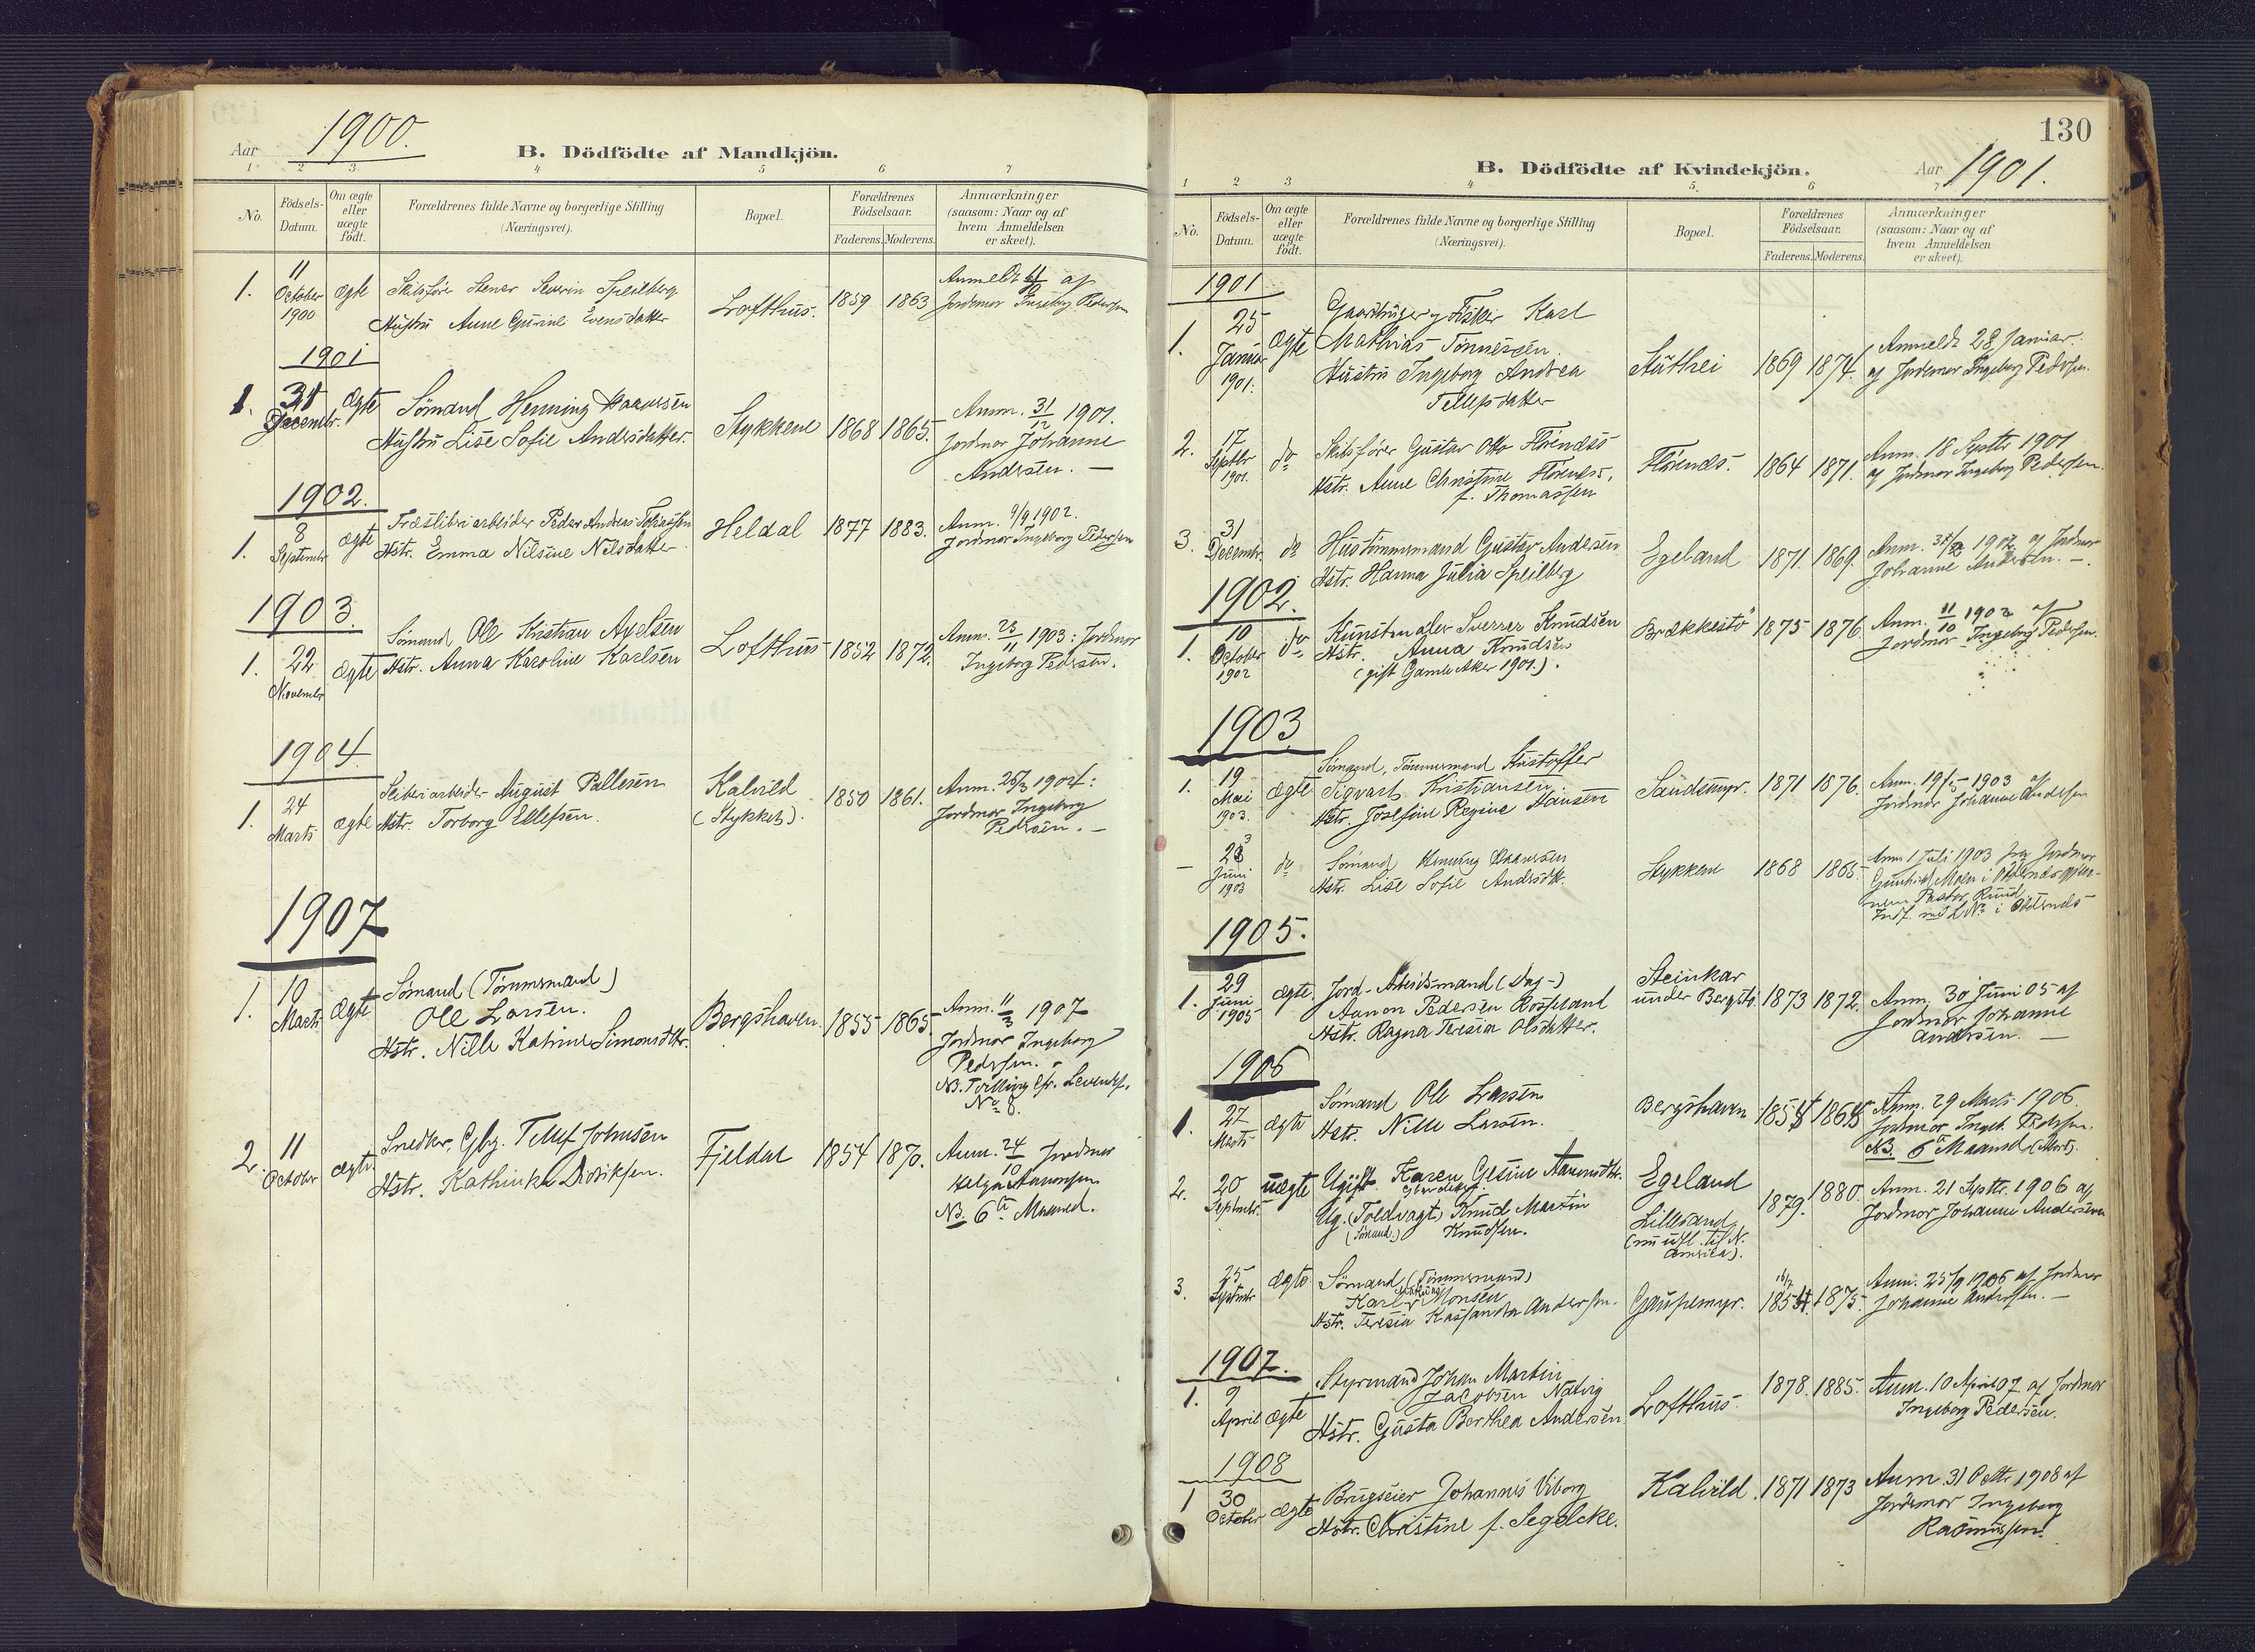 Aar 1900.
B. Dödfödte af Mandkjön.
1 2 3. 4 5 6 7
No.
Födsels-
Datum.
Om ægte
eller
uægte
født.
Forældrenes fulde Navne og borgerlige Stilling
(Næringsvei).
Bopæl.
Forældrenes
Födselsaar.
Faderens. Moderens.
Anmærkninger
(saasom: Naar og af
hvem Anmeldelsen
er skeet).
1.
11
October
1900
ægte
Skibsfører Severin Speilberg
Hustru Anne Gurine Evensdatter
Lofthus.
1859
1863
Anmeldt af
Jordemor Ingeborg Pedersen
1901
1.
31
Decembr.
Ægte
Sømand Henning
Hustru Lise Sofie Andersdatter.
Stykkene
1868
1865.
Anm. 31/12 1901.
Jordmor Johanne
Andersen. —
1902.
1.
8
September
ægte
Træsliberiarbeider Peder Andreas Tobiassen
Hstr. Emma Nilsine Nilsdatter
Heldal
1877
1883.
Anm. 9/9 1902.
Jordmor Ingeborg Pedersen
1903.
1.
22
November
Ægte
Sømand Ole Kristian Axelsen
Hstr. Anna Karoline Karlsen
Lofthus
1852
1872.
Anm. 23/11 1903: Jordmor
Ingeborg Pedersen.
1904.
1.
24
Marts
ægte
Sliberiarbeider August Pallesen
Hstr. Torborg Ellefsen.
Kalvild
(Stykket).
1850
1861.
Anm. 25/3 1904:
Jordmor Ingeborg
Pedersen. —
1907
1.
10
Marts
Ægte
Sømand (Tømmermand)
Ole Larsen.
Hstr. Nille Katrine Simonsdtr.
Bergshaven.
1855
1865.
Anm. 11/3 1907
Jordmor Ingeborg
Pedersen. -
NB. Tvilling cfr. Levendef.
No 8.
2.
11
October
ægte
Snedker, Gbg. Tellef Johnsen
Hstr. Kathinka Didriksen.
Fjeldal
1854
1870.
Anm. 24/10 Jordmor
Helga Aanonsen
NB. 6te Maaned.
130
B. Dödfödte af Kvindekjön.
Aar 1901.
1 2 3 4 5. 6 7
No.
Födsels-
Datum.
Om ægte
eller
uægte
födt.
Forældrenes fulde Navne og borgerlige Stilling
(Næringsvei).
Bopæl.
Forældrenes
Födselsaar.
Faderens. Moderens.
Anmærkninger
(saasom: Naar og af
hvem Anmeldelsen
er skeet).
1901
1.
25
Januar
1901.
Ægte
Gaardbruger og Fisker Karl
Mathias Tønnesen.
Hustru Ingeborg Andrea
Tellefsdatter
1869
1874.
Anmeldt 28 Januar.
af Jordemor Ingeborg Pedersen.
2.
17
Septbr
1901.
do
Skibsfører Gustav Otto Flørendss
Hstr. Anne Christine Flørends,
f. Thomassen
Flørends.
1864
1871.
Anm. 18 Septbr 1901
af Jordmor Ingeborg Pedersen.
3.
31
Decembr.
do
Hustømmermand Gustav Andersen
Hstr. Hanna Julia Speilberg
Egeland
1871.
1869.
Anm. af Jordmor
Johanne Andersen. —.
1902.
1.
10
October
1902
do
Kunstmaler Sverre Knudsen
Hstr. Anna Knudsen
(gift Gamle Aker 1901).
Brækkestø
1875
1876.
Anm. 11/10 1902 af
Jordmor Ingeborg Pedersen.
1903
1.
19
Mai
1903.
Ægte
Sømand, Tømmermand Kristoffer
Sigvart Kristiansen
Hstr. Josefine Regine Hansen
Sandsmyr.
1871
1876.
Anm. 19/5 1903 af
Jordmor Johanne Andersen
—
23
Juni
1903
do
Sømand Henning
Hstr. Lise Sofie Andersdtr.
Stykkene
1868
1865.
Anm 1 Juli 1903 fra Jordmor
Gunhild Moen i gjen-
nem Pastor Ruud
1905.
1.
29
Juni
1905
ægte.
Jord-Arbeidsmand (Dag-)
Aanon Pedersen Rosseland
Hstr. Ragna Teresia Olsdatter.
Steinkar
under Bergstø.
1873
1872.
Anm. 30 Juni 05 af
Jordmor Johanne
Andersen. —
1906
1.
27
Marts
Ægte
Sømand Ole Larsen
Hstr. Nille Larsen.
Bergshaven
1855
1865
Anm. 29 Marts 1906.
Jordmor Ingeb. Pedersen.
NB. 6te Maaned (Abort).
2.
20
Septembr.
uægte
Ugift Karen Gesine Aanonsdtr.
Ug. (Toldvagt) Knud Martin
(Sømand.) Knudsen.
Egeland
Lillesand
(nu udfl. til N.
Amerika).
1879.
1880.
Anm. 21 Septbr. 1906 af
Jordmor Johanne Andersen
3.
25
Septmbr
Ægte
Sømand (Tømmermand)
Karl Monsen
Hstr. Teresia Kassandra Andersen.
Gaupemyr.
16/7
1854.
1875.
Anm. 25/9 1906 af Jordmor
Johanne Andersen. —
1907.
1.
9
April
ægte
Styrmand Johan Martin
Jacobsen Natvig
Hstr. Gusta Berthea Andersen.
Lofthus.
1878.
1885.
Anm. 10 April 07 af Jordmor
Ingeborg Pedersen.
1908
1
30
October
ægte
Brugseier Johannes Viborg
Hstr. Christine f. Segelcke.
Kalvild.
1871
1873
Anm. 31 Octbr 1908 af
Jordemor Ingeborg
Rasmussen.